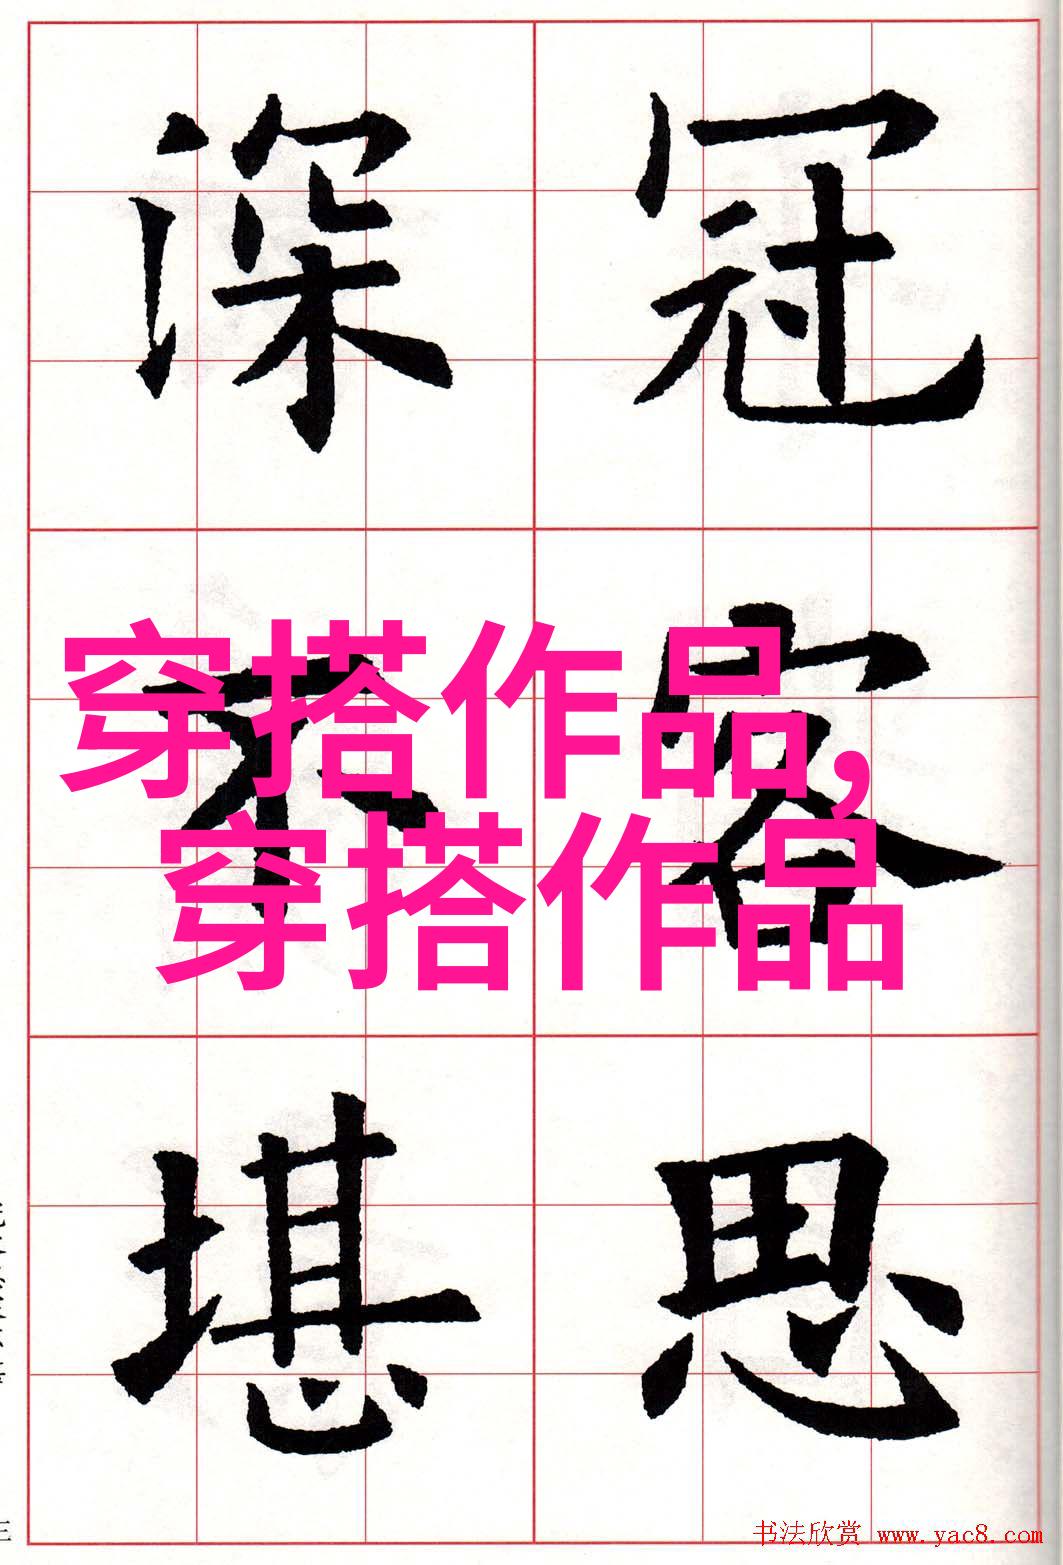 深 冠
不 容
堪 思
穿搭作品,
穿搭作品
书法欣赏 www.yac8.com